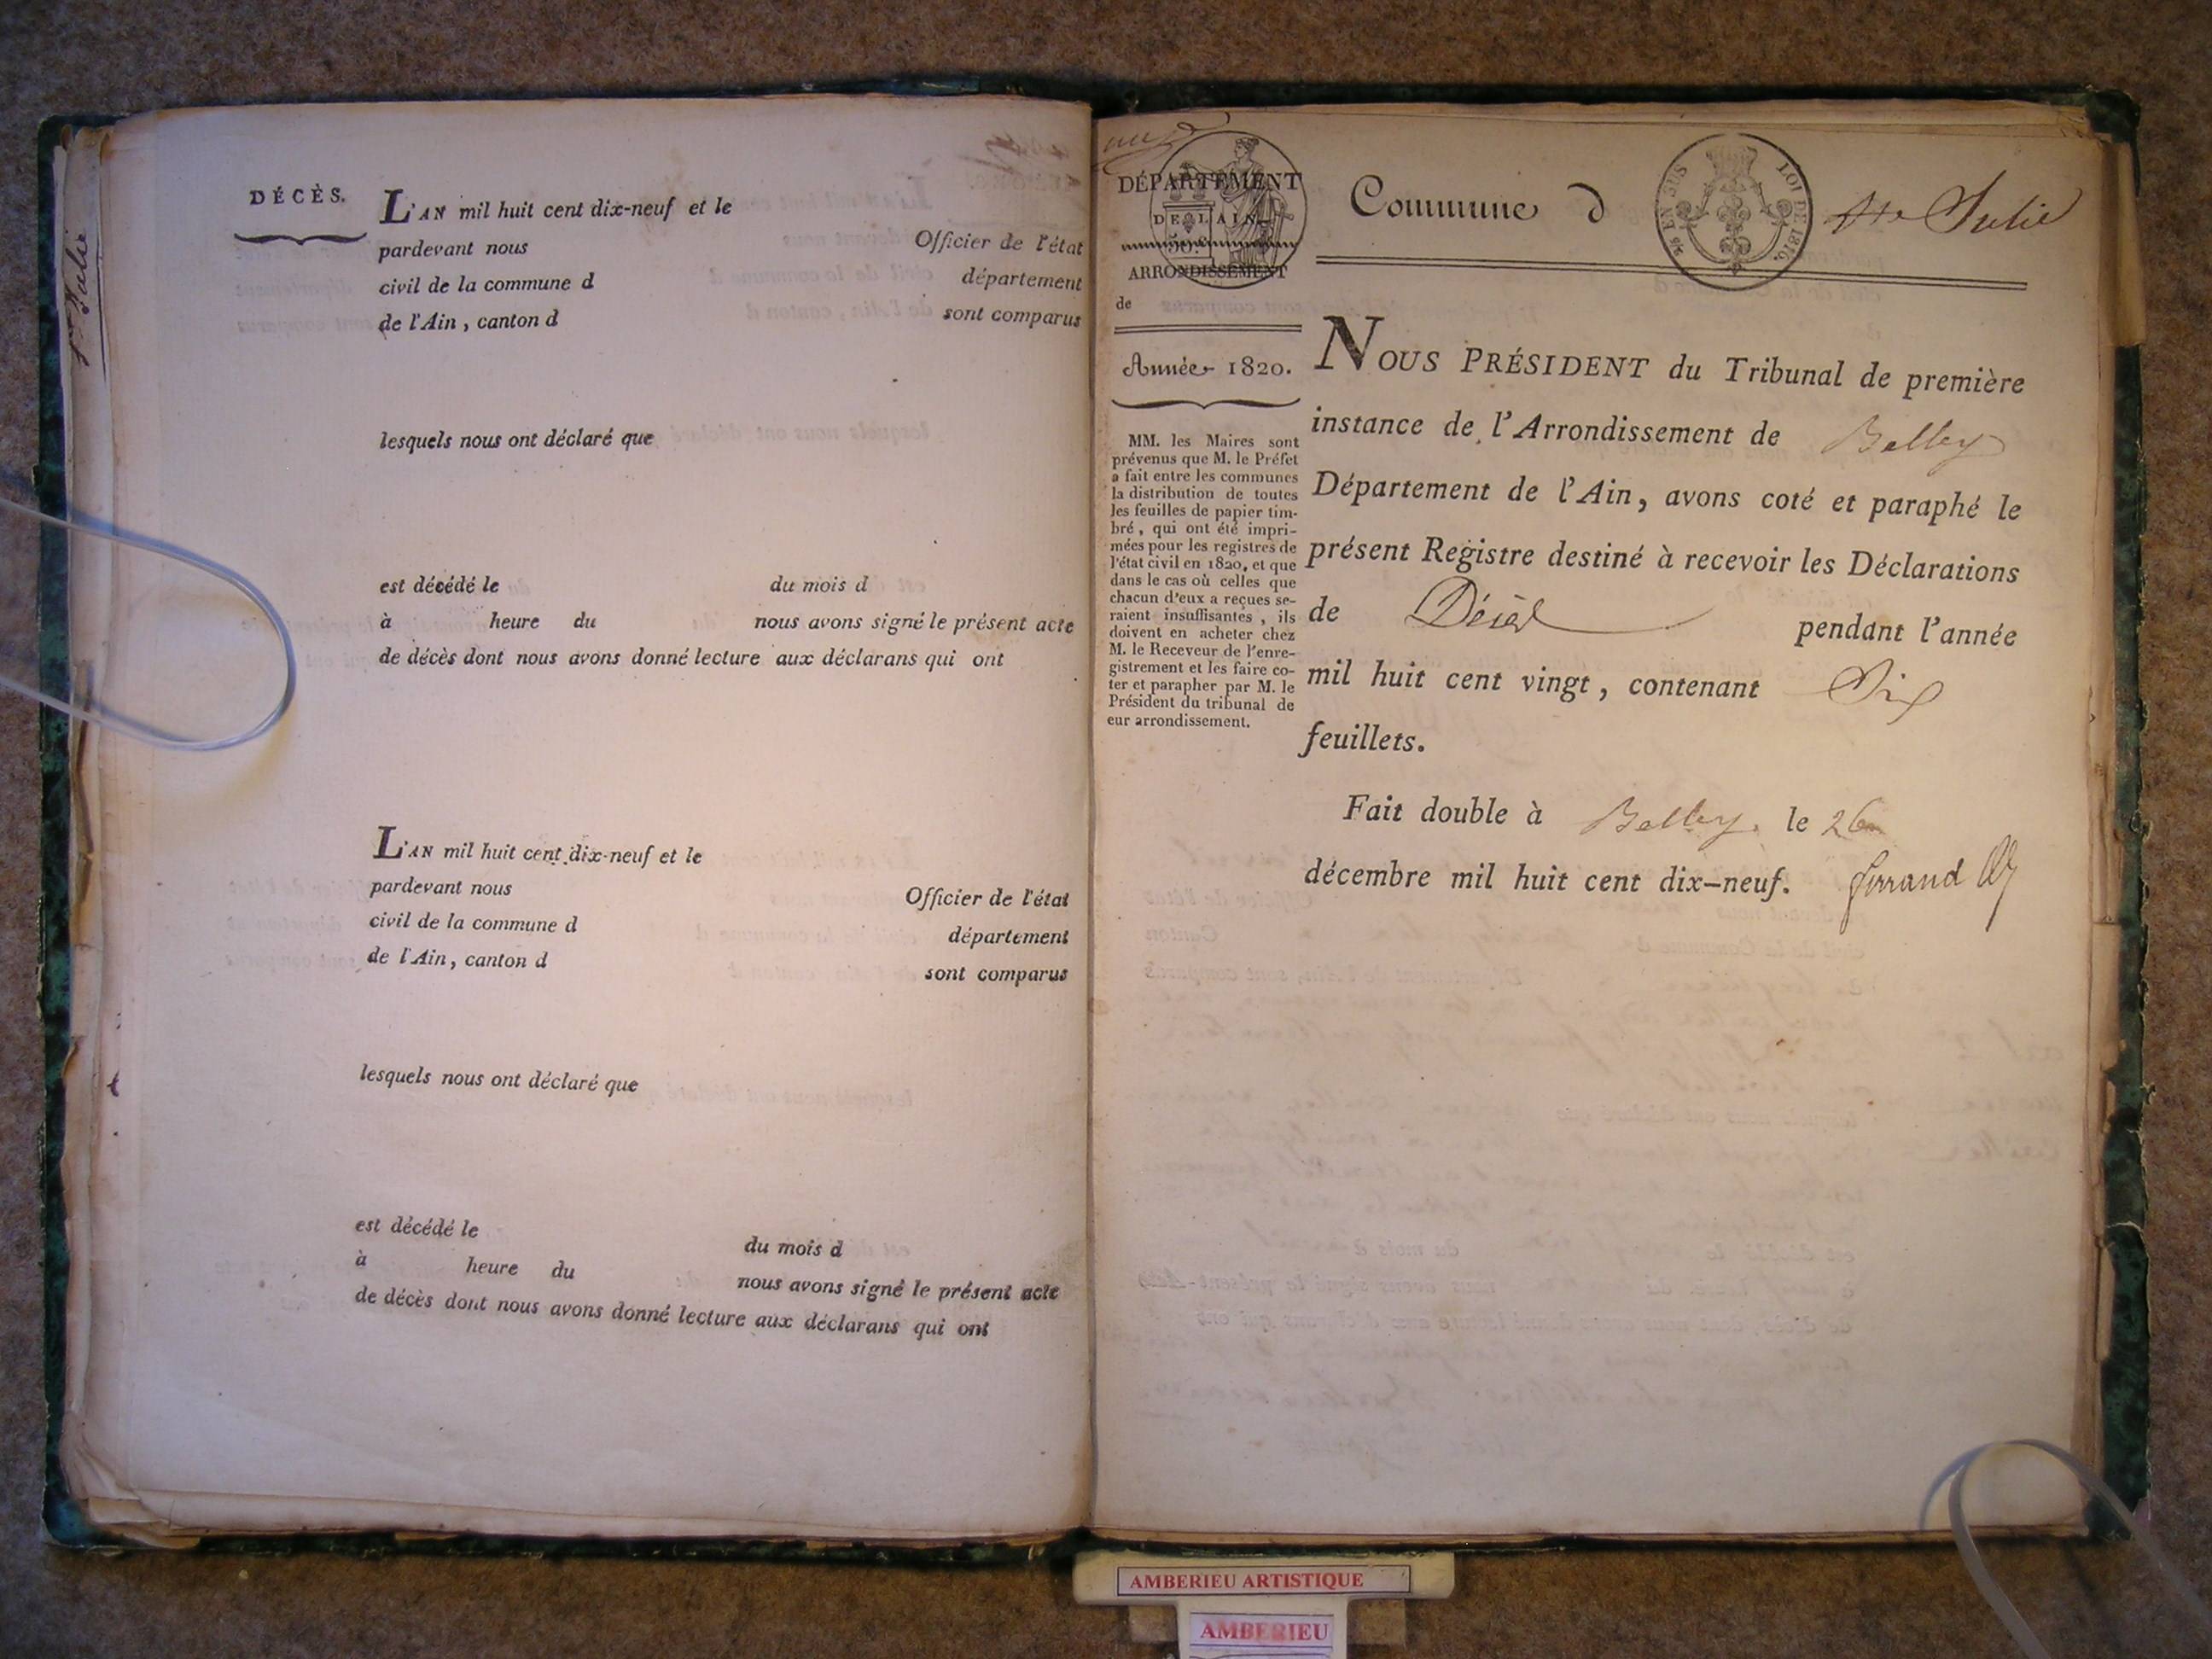 Ste Julie
DÉCÈS.
L'AN mil huit cent dix-neuf et le
pardevant nous Officier de l'état
civil de la commune d département
de l'Ain, canton d sont comparus
lesquels nous ont déclaré que
est décédé le du mois d
à heure du nous avons signé le présent acte
de décès dont nous avons donné lecture aux déclarans qui ont
L'AN mil huit cent dix-neuf et le
pardevant nous Officier de l'état
civil de la commune d département
de l'Ain, canton d sont comparus
lesquels nous ont déclaré que
est décédé le du mois d
à heure du nous avons signé le présent acte
de décès dont nous avons donné lecture aux déclarans qui ont
DÉPARTEMENT
DE L'AIN.
ARRONDISSEMENT
de
Année 1820.
MM. les Maires sont
prévenus que M. le Préfet
a fait entre les communes
la distribution de toutes
les feuilles de papier tim-
bré, qui ont été impri-
mées pour les registres de
l'état civil en 1820, et que
dans le cas où celles que
chacun d'eux a reçues se-
raient insuffisantes, ils
doivent en acheter chez
M. le Receveur de l'enre-
gistrement et les faire co-
ter et parapher par M. le
Président du tribunal de
eur arrondissement.
Commune d Ste Julie
LOI DE 1816.
NOUS PRÉSIDENT du Tribunal de première
instance de l'Arrondissement de Belley
Département de l'Ain, avons coté et paraphé le
présent Registre destiné à recevoir les Déclarations
de Décès pendant l'année
mil huit cent vingt, contenant Six
feuillets.
Fait double à Belley. le 26
décembre mil huit cent dix-neuf. ferrand
AMBERIEU ARTISTIQUE
AMBERIEU